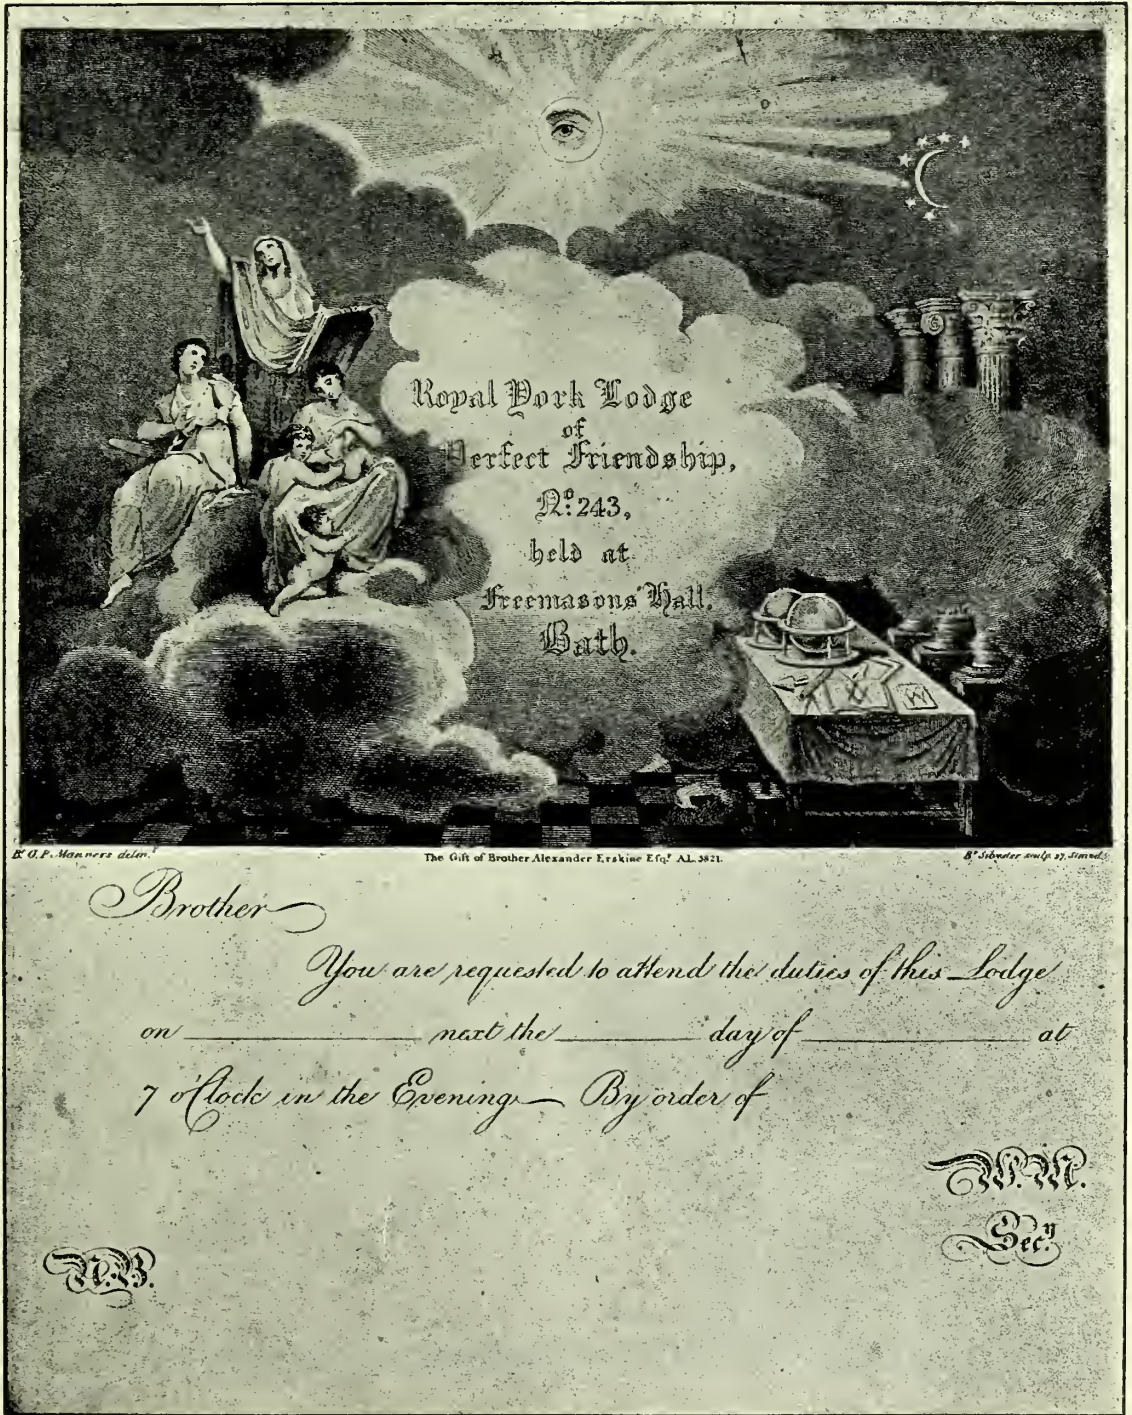 Royal York Lodge
of
Perfect Friendship,
No. 243,
held at
Freemasons' Hall.
Bath.
Br. G. P. Manners delin.t
The Gift of Brother Alexander Erskine Esqr. AL. 5821.
Br. sculp.
Brother
You are requested to attend the duties of this Lodge
on ____ next the ____ day of ____ at
7 o'Clock in the Evening — By order of
W.M.
Secy.
N.B.